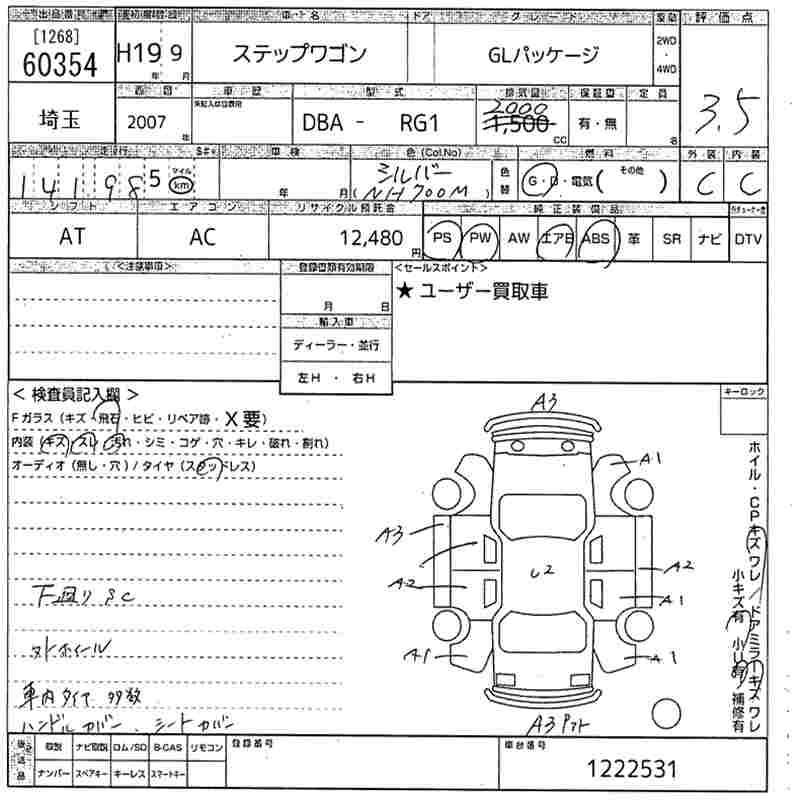 出品番号 初度登録 車名 ドア グレード 駆動 評価点
[1268] 60354
H19年 9月 ステップワゴン GLパッケージ 2WD・4WD 3.5
埼玉
車歴 型式 排気量 保証書 定員
2007年 DBA - RG1 2000 1,500cc 有・無 名
走行 車検 色(Col.No) 燃料 外装 内装
141985 マイル km 年 月 シルバー (NH700M) 色替 G・D・電気( その他 ) C C
シフト エアコン リサイクル預託金 純正装備品
AT AC 12,480円 PS PW AW エアB ABS 革 SR ナビ DTV
<注意事項> 登録書類有効期限 <セールスポイント>
月 日 ★ ユーザー買取車
輸入車
ディーラー・並行
左H ・ 右H
< 検査員記入欄 > キーロック
Fガラス(キズ・飛石・ヒビ・リペア跡・X要)
内装(キズ・スレ・汚れ・シミ・コゲ・穴・キレ・破れ・割れ)
オーディオ(無し・穴)/タイヤ(スタッドレス)
A3
A1
A3
A2
A2
A1
U2
A1
A1
A3
下回りSC
外ホイール
車内タイヤ
ハンドルカバー、シートカバー
ホイル・CPキズワレ/ドアミラーキズワレ
小キズ有 小U有 補修有
取説 ナビ取説 ロム/SD B-CAS リモコン 登録番号 車台番号
ナンバー スペアキー キーレス スマートキー 1222531